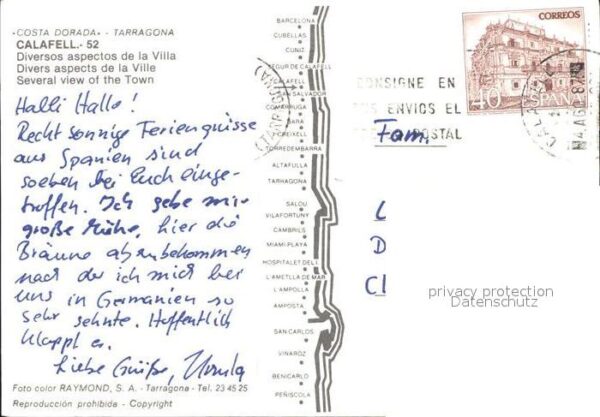 «COSTA DORADA» - TARRAGONA
CALAFELL.- 52
Diversos aspectos de la Villa
Divers aspects de la Ville
Several view of the Town
Halli Hallo!
Recht sonnige Feriengrüsse
aus Spanien sind
soeben bei Euch einge-
troffen. Ich gebe mir
große Mühe, hier die
Bräune abzubekommen
nach der ich mich bei
uns in Germanien so
sehr sehnte. Hoffentlich
klappt es.
Liebe Grüße, Ursula
Foto color RAYMOND, S. A. - Tarragona - Tel. 23 45 25
Reproducción prohibida - Copyright
BARCELONA
CUBELLAS
CUNIT
SEGUR DE CALAFELL
CALAFELL
SAN SALVADOR
COMARRUGA
BARA
CREIXELL
TORREDEMBARRA
ALTAFULLA
TARRAGONA
SALOU
VILAFORTUNY
CAMBRILS
MIAMI-PLAYA
HOSPITALET DEL I.
L'AMETLLA DE MAR
L'AMPOLLA
AMPOSTA
SAN CARLOS
VINAROZ
BENICARLO
PEÑISCOLA
CONSIGNE EN
SUS ENVIOS EL
POSTAL
CORREOS
40
ESPAÑA
Fam.
L
D
Cl
privacy protection
Datenschutz